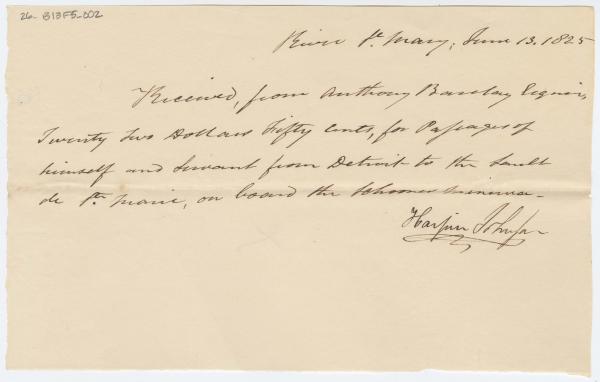 26-B13F5-002
River St. Mary, June 13. 1825
Received, from Anthony Barclay Esquire,
Twenty two Dollars Fifty cents, for Passages of
himself and Servant from Detroit to the Sault
de Ste. Marie, on board the Schooner Minerva.
Johnson